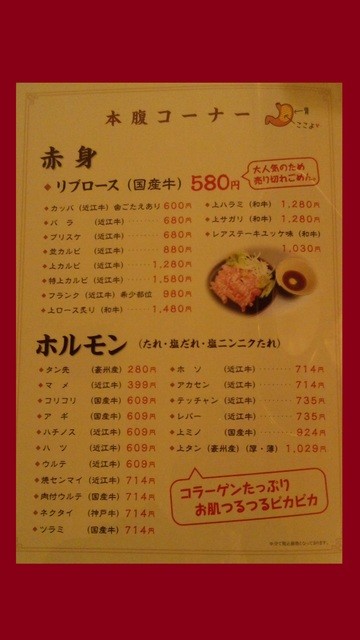 本腹コーナー
ここよ?
赤身
リブロース(国産牛) 580円
大人気のため
売り切れごめん。
カッパ(近江牛)歯ごたえあり 600円
バラ (近江牛) 680円
ブリスケ (近江牛) 680円
並カルビ (近江牛) 880円
上カルビ (近江牛) 1,280円
特上カルビ(近江牛) 1,580円
フランク(近江牛)希少部位 980円
上ロース炙り(和牛) 1,480円
上ハラミ(和牛) 1,280円
上サガリ(和牛) 1,280円
レアステーキユッケ味(和牛)
1,030円
ホルモン (たれ・塩だれ・塩ニンニクたれ)
タン先 (豪州産) 280円
マメ (近江牛) 399円
コリコリ (国産牛) 609円
アギ (国産牛) 609円
ハチノス (近江牛) 609円
ハツ (近江牛) 609円
ウルテ (近江牛) 609円
焼センマイ(近江牛) 714円
肉付ウルテ(国産牛) 714円
ネクタイ (神戸牛) 714円
ツラミ (国産牛) 714円
ホソ (近江牛) 714円
アカセン (近江牛) 714円
テッチャン (近江牛) 735円
レバー (近江牛) 735円
上ミノ (国産牛) 924円
上タン(豪州産)(厚・薄) 1,029円
コラーゲンたっぷり
お肌つるつるピカピカ